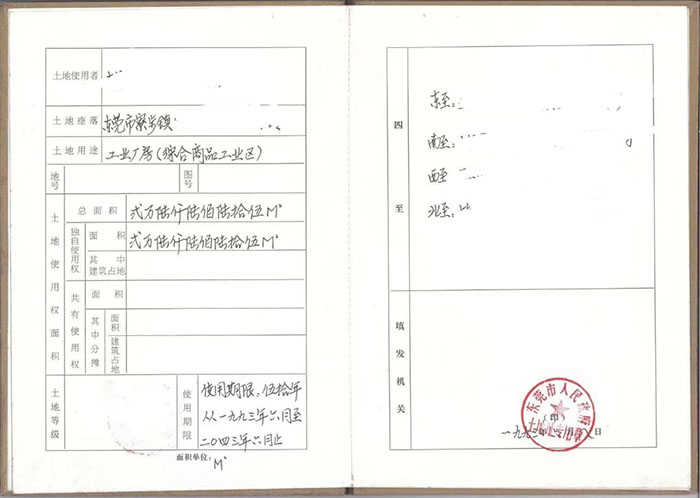 土地使用者
土地座落 东莞市寮步镇
土地用途 工业厂房(综合商品工业区)
地号 图号
土地使用权面积
总面积 弍万陆仟陆佰陆拾伍M²
独自使用权 面积 弍万陆仟陆佰陆拾伍M²
其中建筑占地
共有使用权 面积
其中分摊 面积
建筑占地
土地等级
使用期限 使用期限:伍拾年
从一九九三年六月至
二〇四三年六月止
面积单位:M²
四至
东至:
南至:
西至:
北至:
填发机关
东莞市人民政府
(印)
一九九三年 月 日